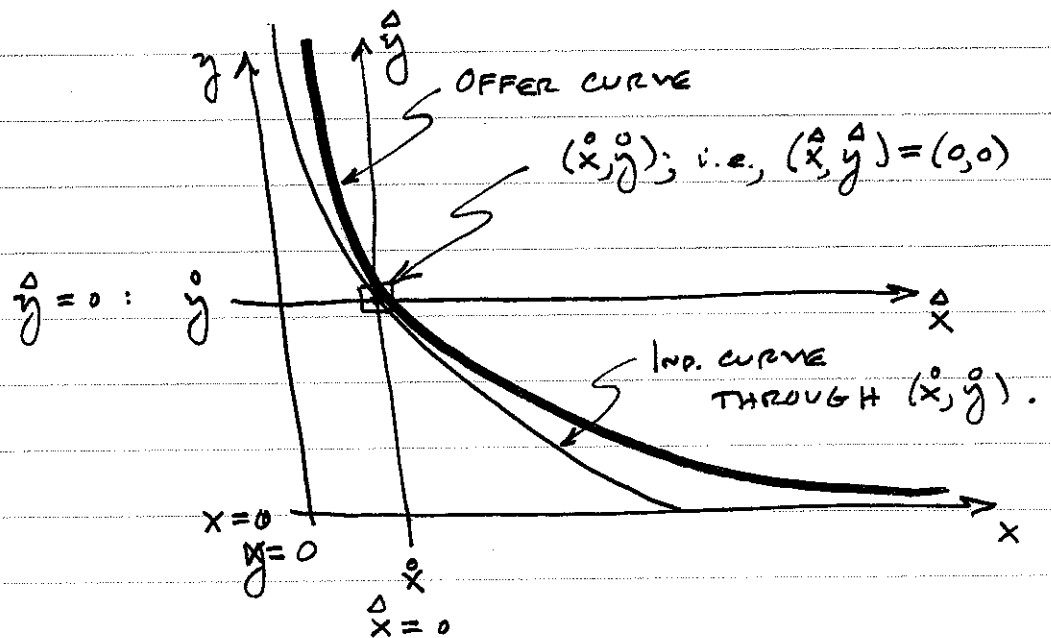 y
ŷ
OFFER CURVE
(x̊, ẙ); i.e., (x̂, ŷ) = (0,0)
ŷ = 0 : ẙ
x̂
IND. CURVE
THROUGH (x̊, ẙ).
x = 0
y = 0
x
x̊
x̂ = 0